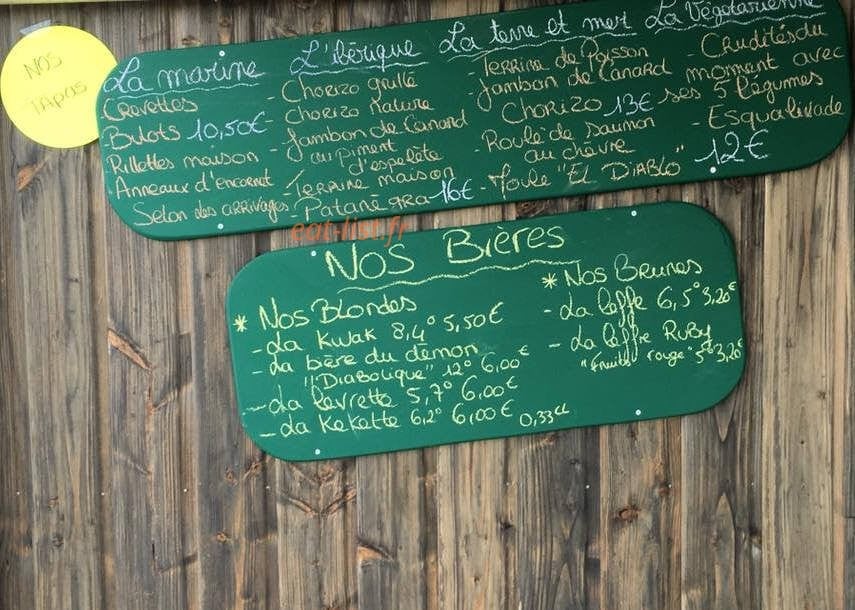 NOS
TAPAS
La marine
Crevettes
- Bulots 10,50€
Rillettes maison
Anneaux d'encornet
Selon les arrivages
L'ibérique
- Chorizo grillé
- Chorizo Nature
- Jambon de Canard
au piment
d'espelète
- Terrine maison
- Patanegra 16€
La terre et mer
- Terrine de Poisson
- Jambon de Canard
Chorizo 13€
- Roulé de saumon
au chèvre
- Moule "EL DiABLO"
La Végétarienne
- Crudités du
moment avec
ses 5 légumes
- Esqualivade
12€
eat-list.fr
Nos Bières
* Nos Blondes
- La Kwak 8,4° 5,50€
- La bère du démon
"Diabolique" 12° 6,00€
- La Levrette 5,7° 6,00€
- La Kekette 6,2° 6,00€ 0,33cl
* Nos Brunes
- La leffe 6,5° 3,20€
- La leffe Ruby
"Fruits rouge" 5° 3,20€